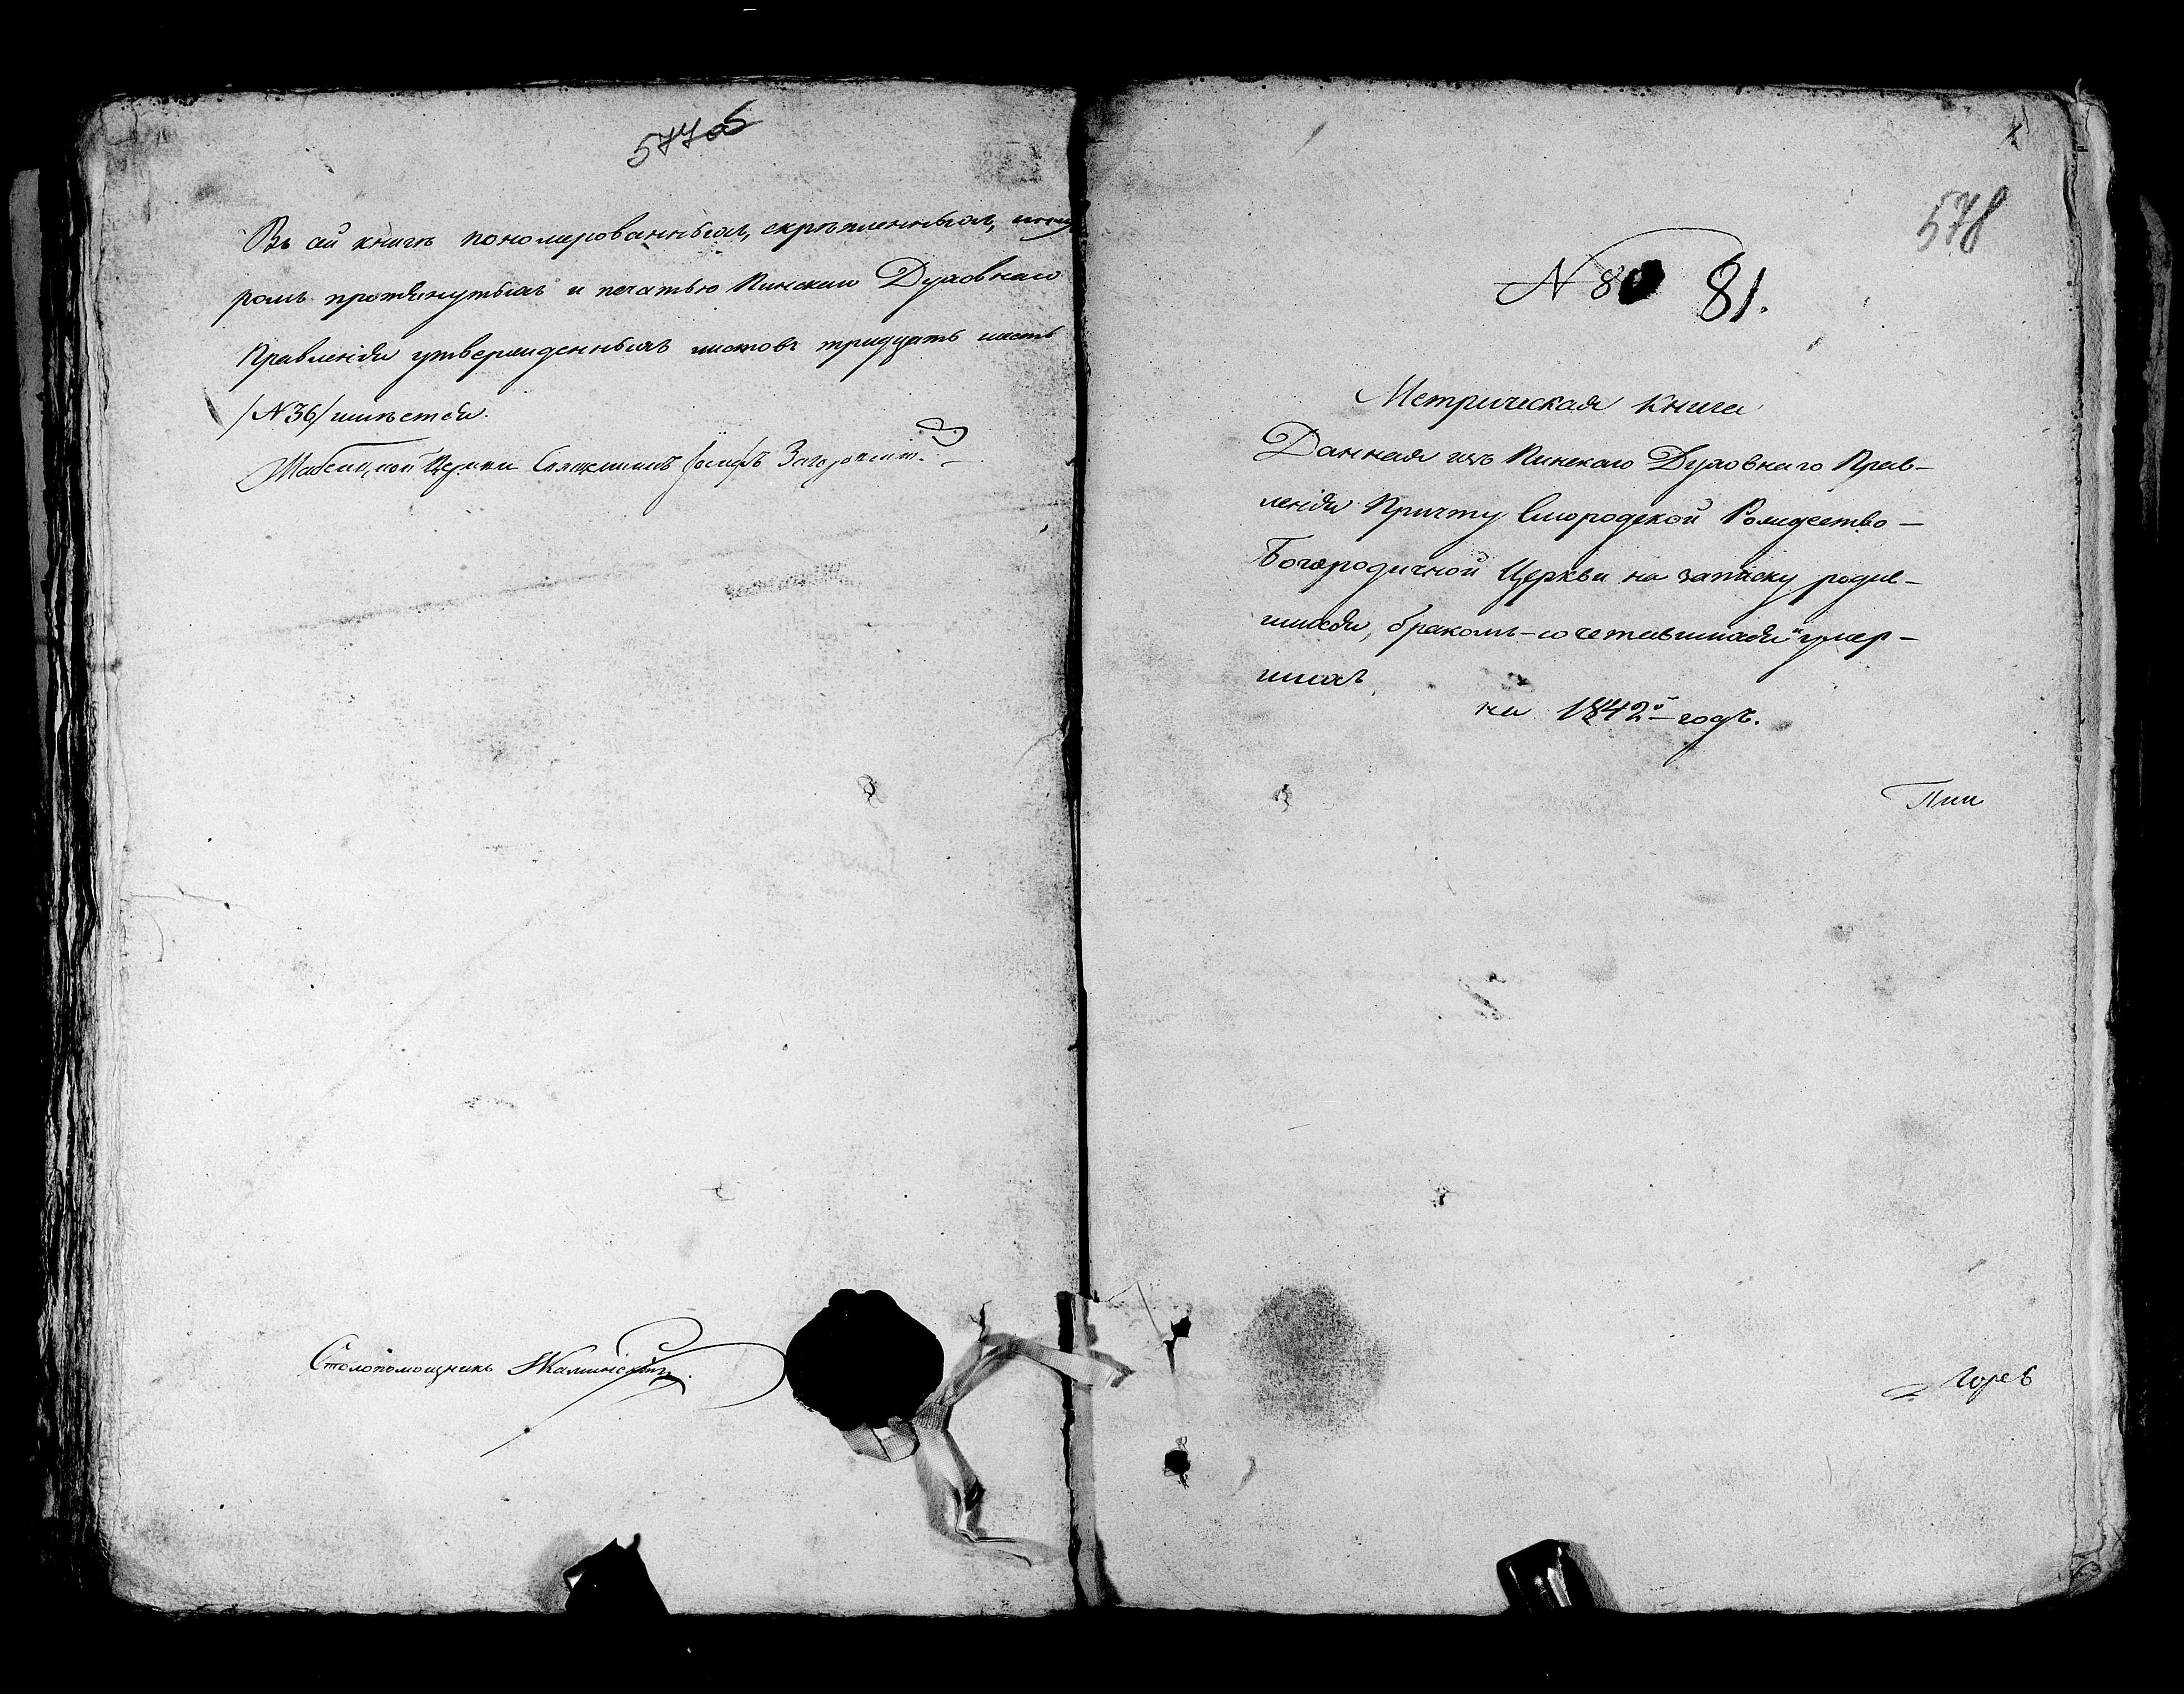 577об
Въ сей книгѣ пономерованныхъ, скрѣпленныхъ, шну
ромъ протянутыхъ и печатью Пинскаго Духовнаго
Правленія утвержденныхъ листовъ тридцать шесть
/N36/ имѣется.
Церкви Священникъ Іосифъ
Столопомощникъ
1
578
N 80 81.
Метрическая Книга
Данная изъ Пинскаго Духовнаго Прав-
ленія Причту Смородской Рождество-
Богородичной Церкви на записку родив-
шихся, бракомъ-сочетавшихся и умер-
шихъ
на 1842й годъ.
Пин